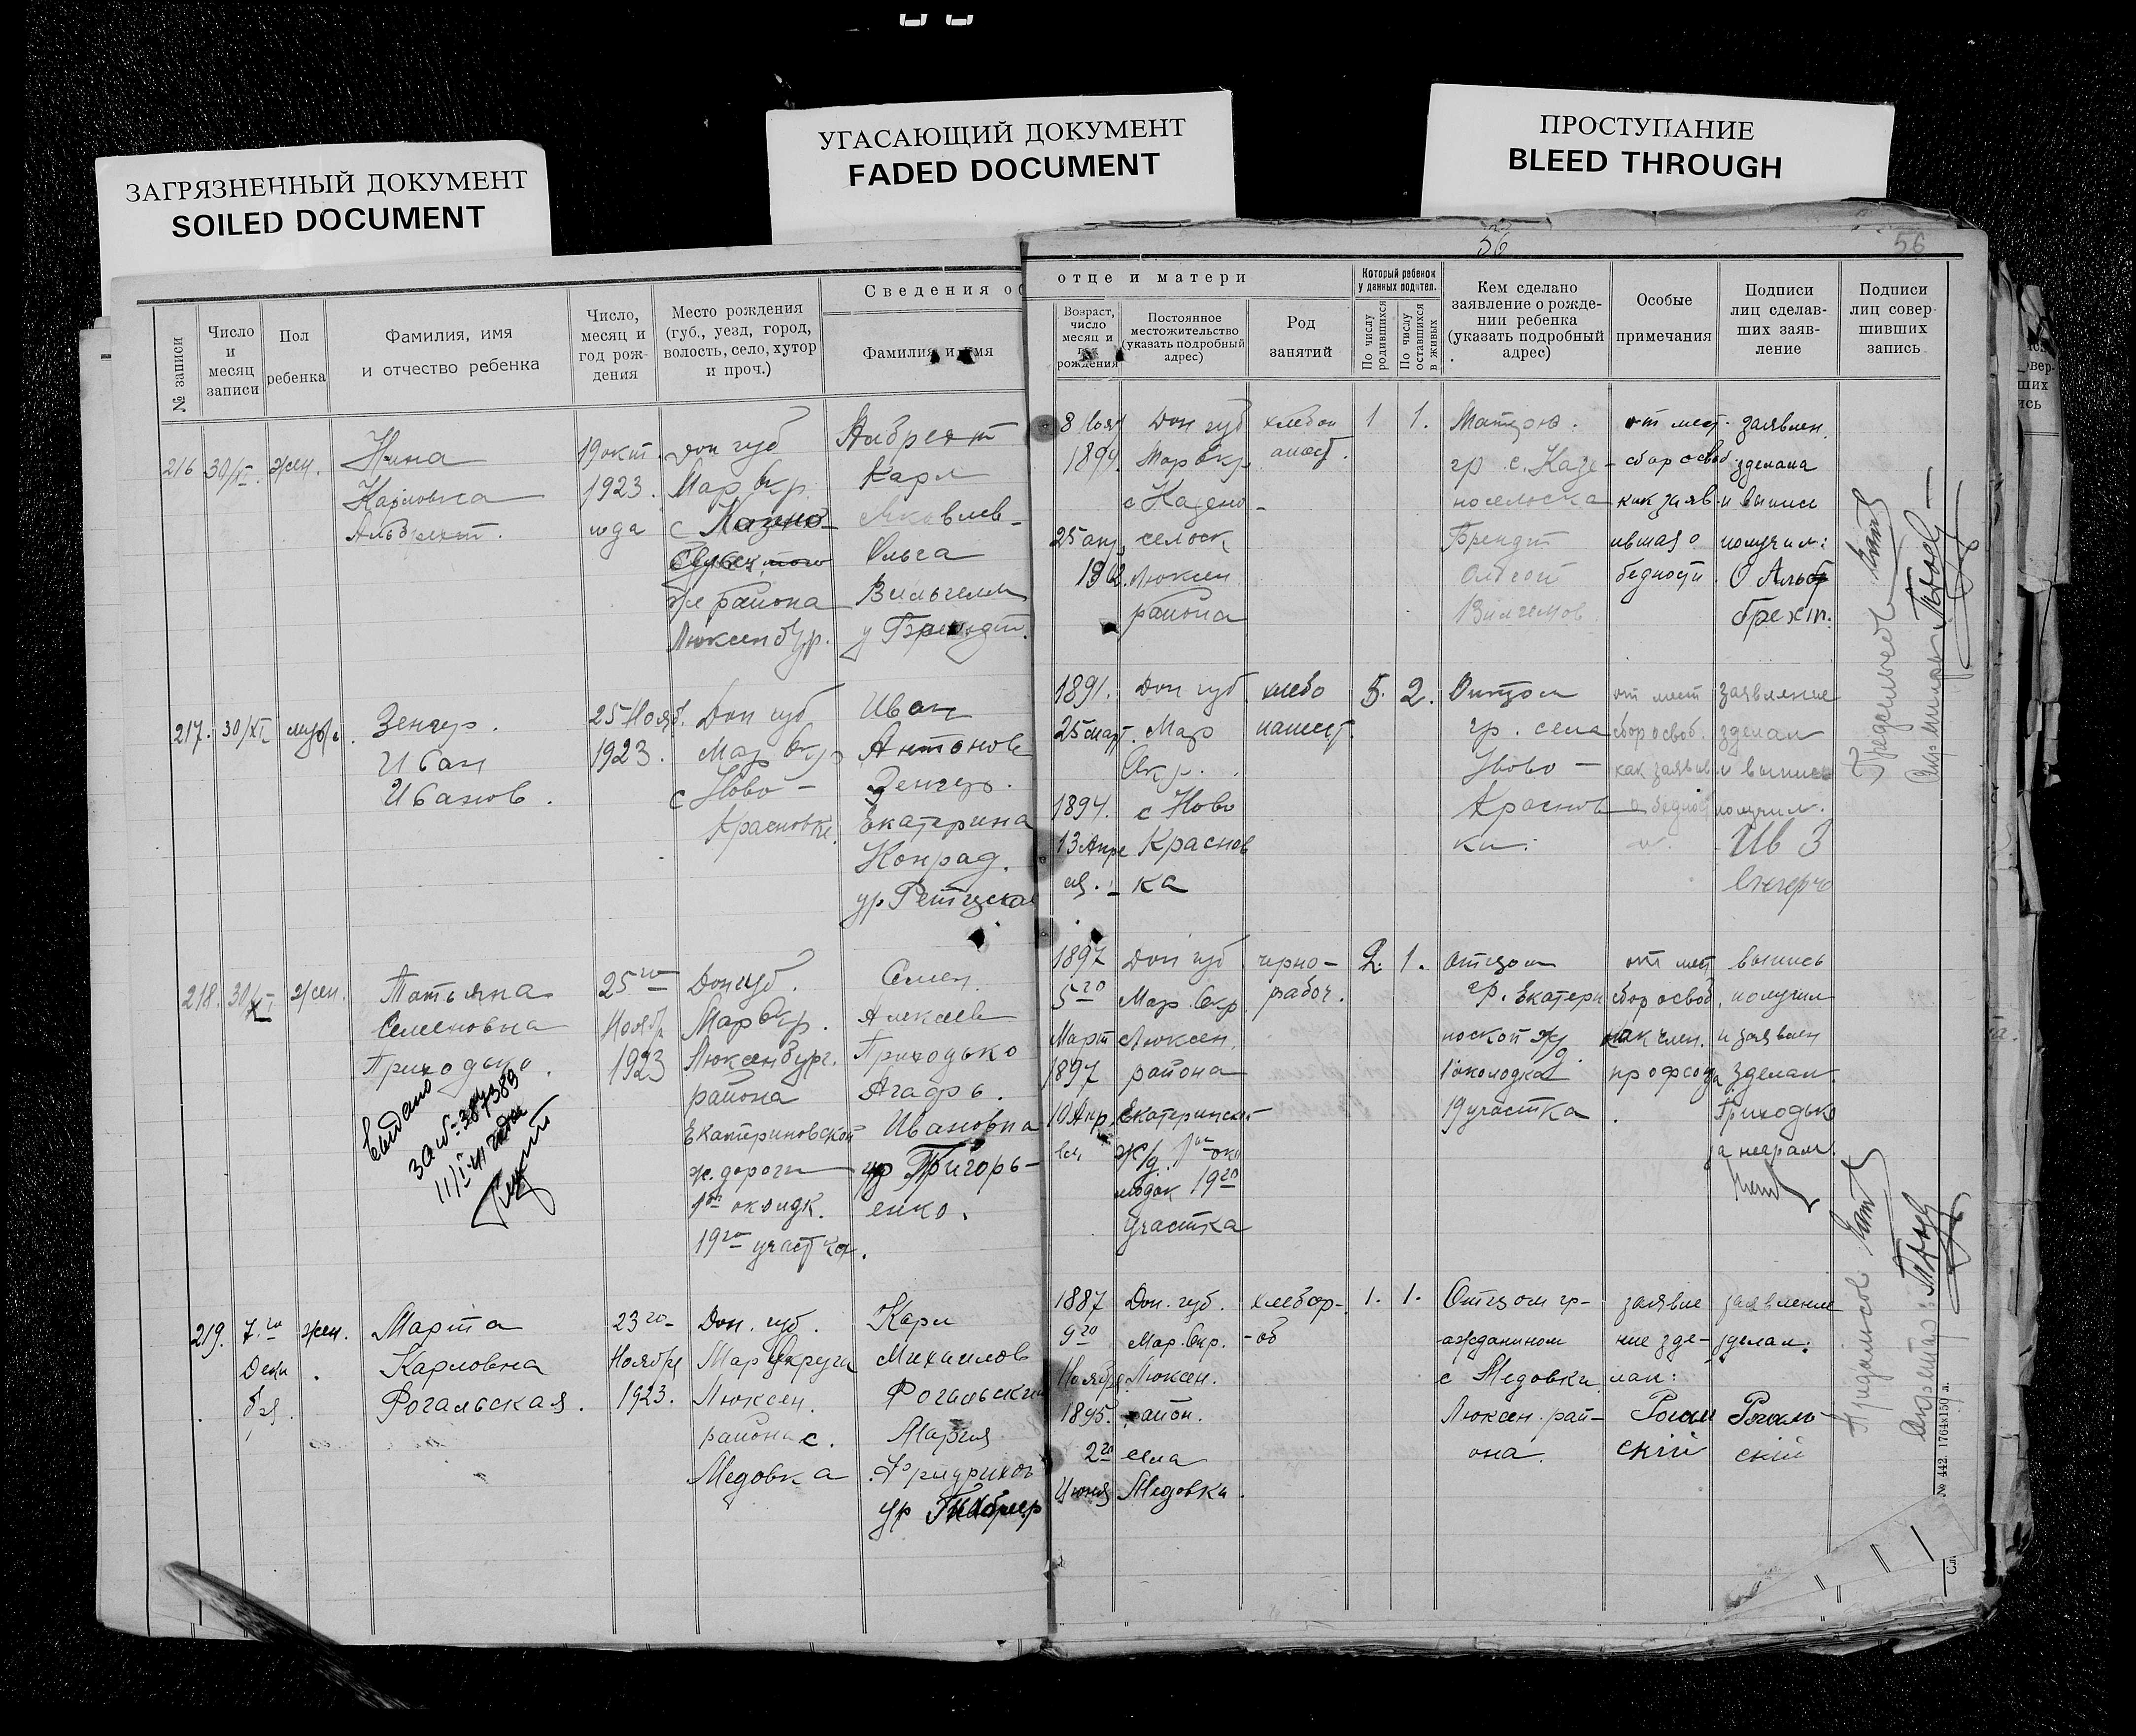 ЗАГРЯЗНЕННЫЙ ДОКУМЕНТ
SOILED DOCUMENT
УГАСАЮЩИЙ ДОКУМЕНТ
FADED DOCUMENT
ПРОСТУПАНИЕ
BLEED THROUGH
56
56
Сведения об отце и матери
№ записи
Число
и
месяц
записи
Пол
ребенка
Фамилия, имя
и отчество ребенка
Число,
месяц и
год рож-
дения
Место рождения
(губ., уезд, город,
волость, село, хутор
и проч.)
Фамилия и имя
Возраст,
число
месяц и
год
рождения
Постоянное
местожительство
(указать подробный
адрес)
Род
занятий
Который ребенок
у данных родител.
По числу
родившихся
По числу
оставшихся
в живых
Кем сделано
заявление о рожде-
нии ребенка
(указать подробный
адрес)
Особые
примечания
Подписи
лиц сделав-
ших заяв-
ление
Подписи
лиц совер-
шивших
запись
216
30/XI.
жен.
Нина
Карловна
Альбрехт.
19 окт.
1923.
года
Дон губ
Мар Окр.
с
же района
Люксенбур.
Карл
Яковлев-
Ольга
Вильгелм
у Брендт.
1894.
25 апр.
Дон губ
Мар Окр.
с Казено-
сельск
Люксен
района
1
1.
Матерю.
гр. с. Казе-
носельска
Брендт
Ольгой
от мест.
сбор освоб
как заяв
ившая о
бедности.
заявлен.
зделала
и выпись
получил:
О Альб
брехт.
217.
30/XI
муж.
Зенгер.
Иван
Иванов.
25 Нояб.
1923.
Дон губ
Мар Окр
с Ново-
Красновке.
Иван
Антонов
Зенгер.
Екатерина
Конрад.
1891.
25 март.
1894.
13 Апре
ля.
Дон губ
Мар
Окр.
с Ново
Краснов
ка
хлебо
пашест.
5.
2.
Отцом
гр. села
Ново-
Краснов
ки.
от мест
сбор освоб.
как заявив
заявление
зделал
и выпись
получил.
Ив З
218.
30/XI
жен.
Татьяна
Семеновна
Приходько.
Выдано
25го
Ноябр
1923
Дон губ.
Мар Окр.
Люксенбург.
района
Екатериновской
ж. дороги
19го участка.
Семен.
Алексеев
Приходько
Агафь.
Ивановна
ур Григорь-
енко.
1897
5го
Март
1897
10 Апр
Дон губ
Мар. Окр.
Люксен.
района
19го
участка
черно-
рабоч.
2.
1.
отцом
гр. Екатери
ноской ж/д.
1 околодка
19 участка
от мест
сбор освоб,
как член.
профсоюза
выпись
получил
и заявлен
зделал.
Приходько
219.
7.го
Дека
бря.
жен.
Марта
Карловна
Рогальская.
23го-
Ноября
1923.
Дон. губ.
Мар Округа
Люксен.
района с.
Медовка
Карл
Михаилов
Рогальский
Мария
1887
9го
Ноября
1895.
2го
Июня
Дон. губ.
Мар. Окр.
Люксен.
район.
села
Медовки.
хлебор-
-об
1.
1.
Отцом гр-
ажданином
с Медовки
Люксен. рай-
она.
заявле
ние зде-
лал:
Рогал
скій
заявление
зделал:
Рогаль
скій
№ 442. 1764х150 л.